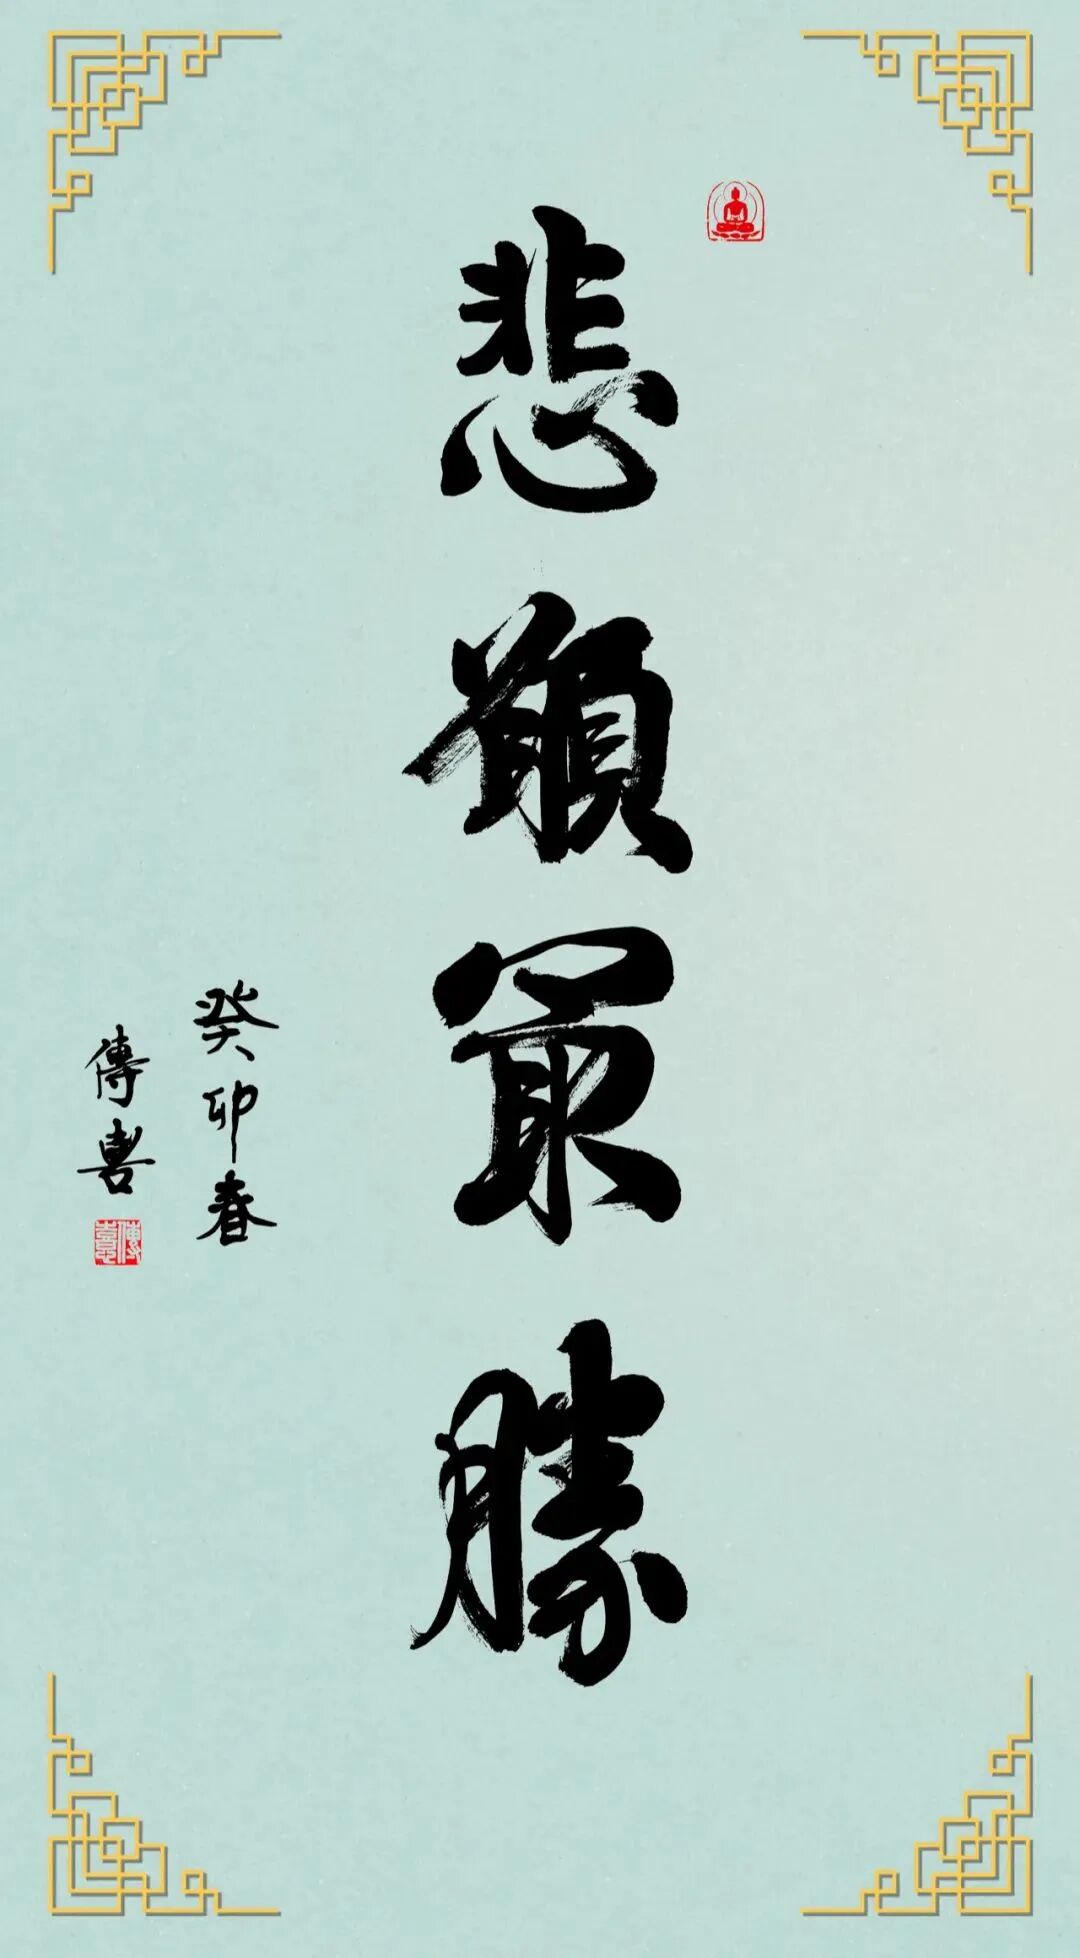 悲願最勝
癸卯春
傳喜
傳喜